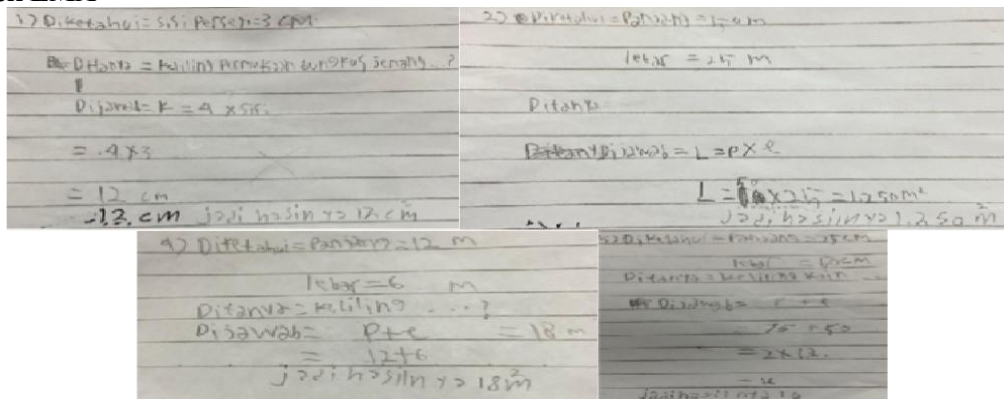 1) Diketahui = sisi Persegi = 3 CM
Ditanya = keliling Permukaan bungkus jenang ..?
Dijawab = K = 4 x sisi
= 4x3
= 12 cm
12. cm jadi hasilnya 12 cm
2) Diketahui = Panjang = 50 m
lebar = 25 m
Ditanya
Dijawab = L = P x l
L = 50 x 25 = 1250 m²
jadi hasilnya 1.250 m²
4) Diketahui = Panjang = 12 m
lebar = 6 m
Ditanya = keliling ...?
Dijawab = P+l = 18 m
= 12+6
jadi hasilnya 18 m²
5) Diketahui = Panjang = 75 cm
lebar = cm
Ditanya = keliling kain
Dijawab =
= 2x12.